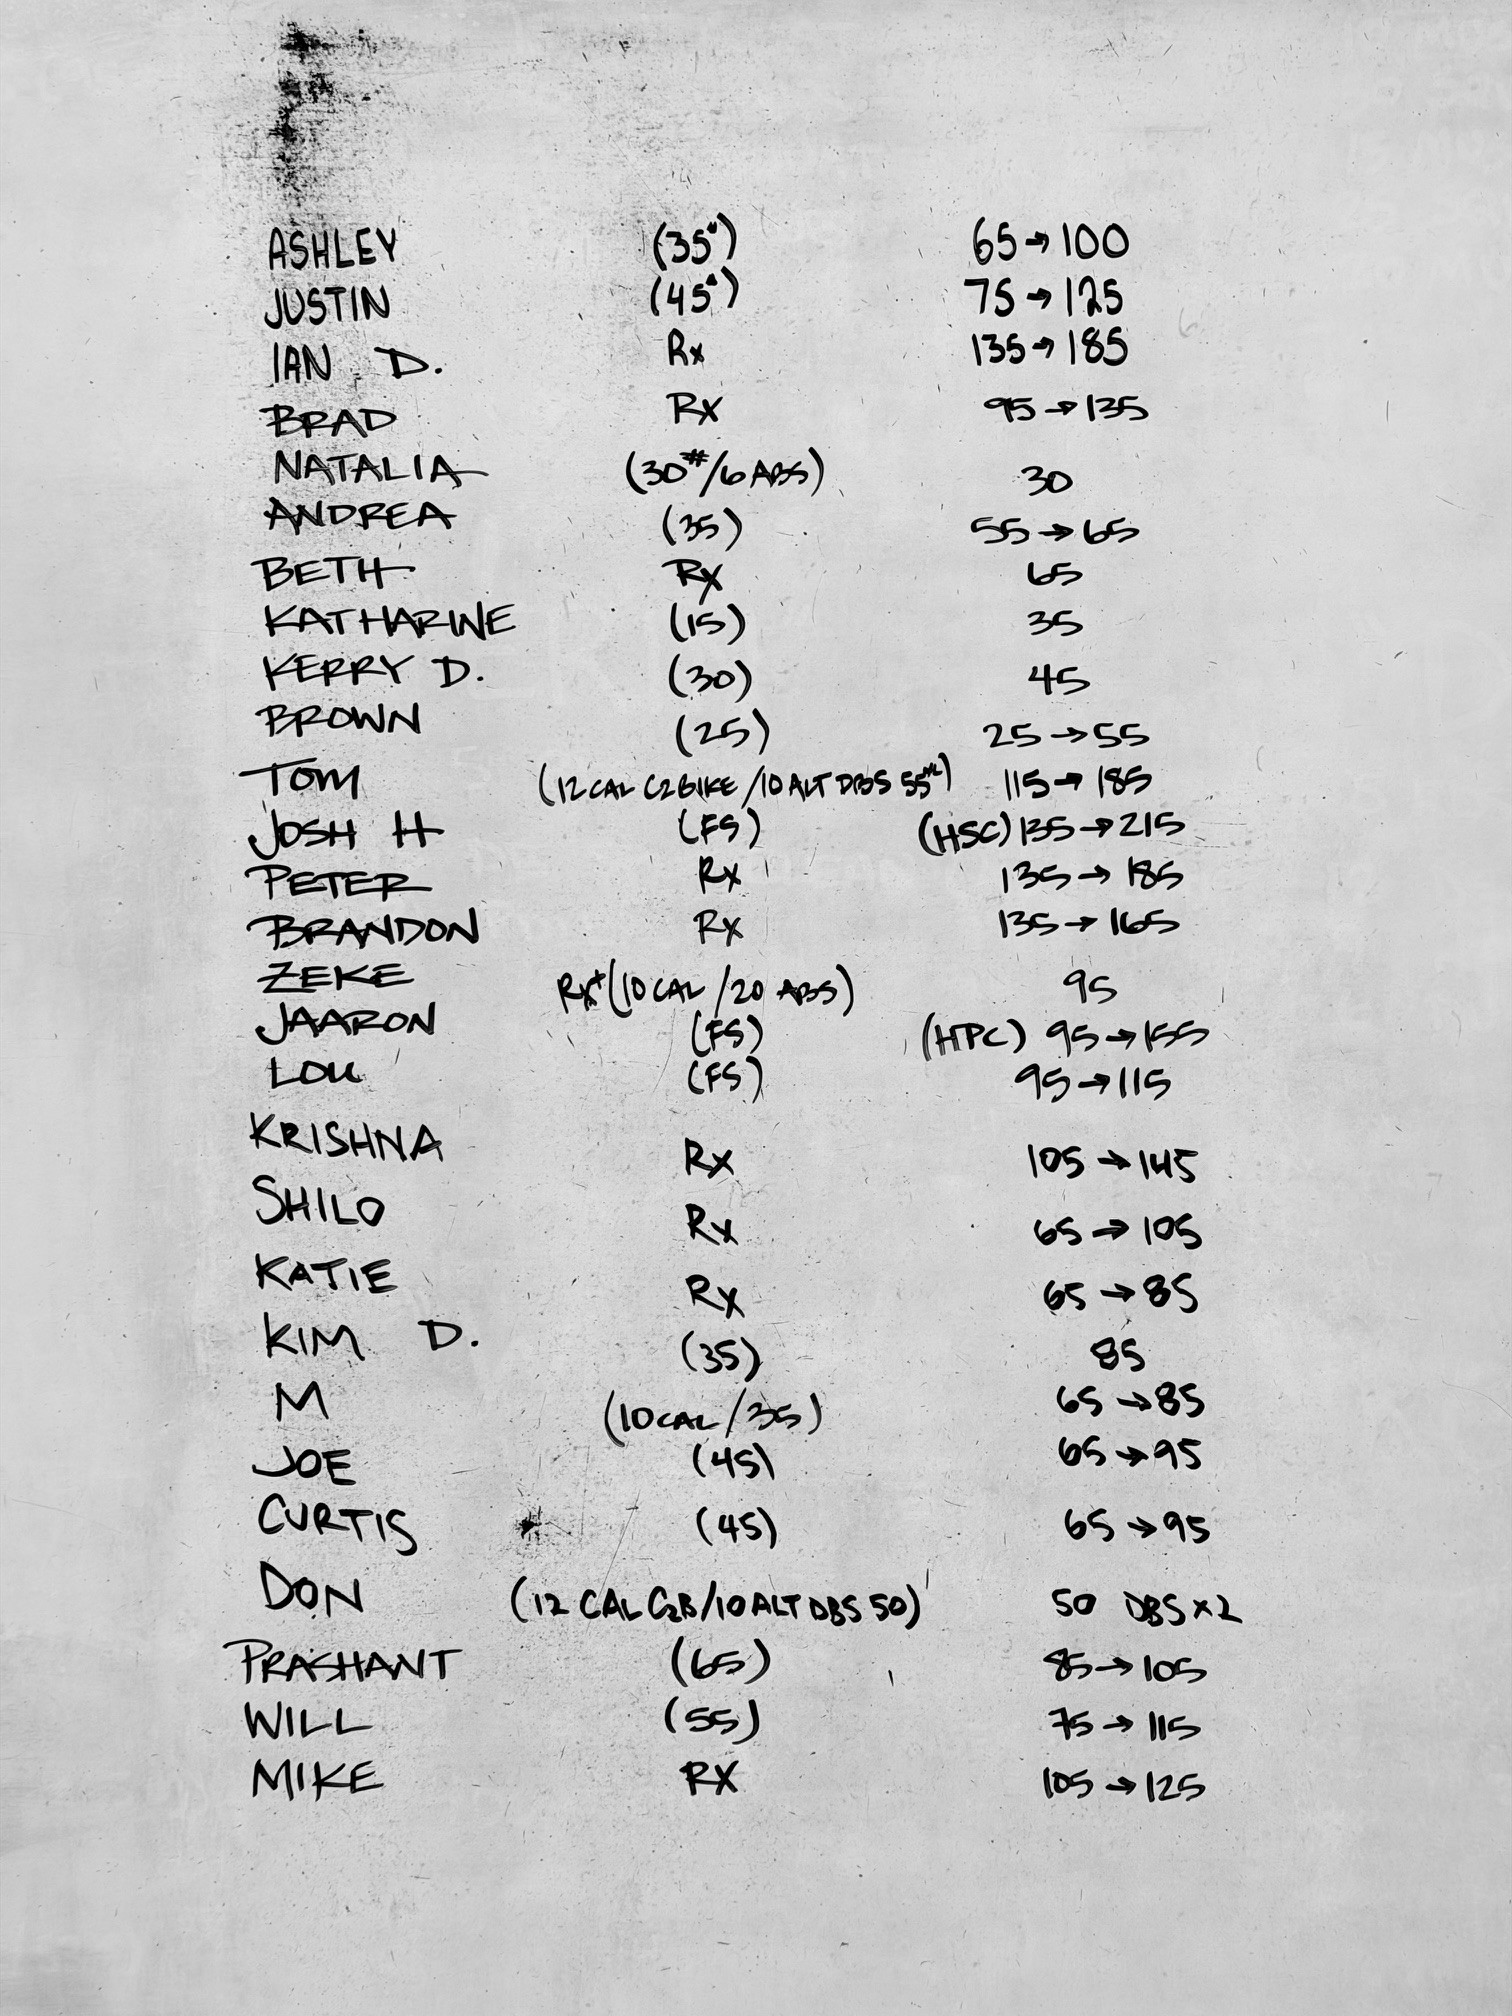 ASHLEY (35#) 65→100
JUSTIN (45#) 75→125
IAN D. Rx 135→185
BRAD RX 95→135
NATALIA (30#/6 ABS) 30
ANDREA (35) 55→65
BETH RX 65
KATHARINE (15) 35
KERRY D. (30) 45
BROWN (25) 25→55
TOM (12 CAL C2BIKE/10 ALT DBS 55) 115→185
JOSH H (FS) (HSC) 135→215
PETER Rx 135→185
BRANDON Rx 135→165
ZEKE Rx+(10 CAL/20 ABS) 95
JAARON (FS) (HPC) 95→155
LOU (FS) 95→115
KRISHNA Rx 105→145
SHILO Rx 65→105
KATIE Rx 65→85
KIM D. (35) 85
M (10 CAL/35) 65→85
JOE (45) 65→95
CURTIS (45) 65→95
DON (12 CAL C2B/10 ALT DBS 50) 50 DBS x2
PRASHANT (65) 85→105
WILL (55) 75→115
MIKE RX 105→125